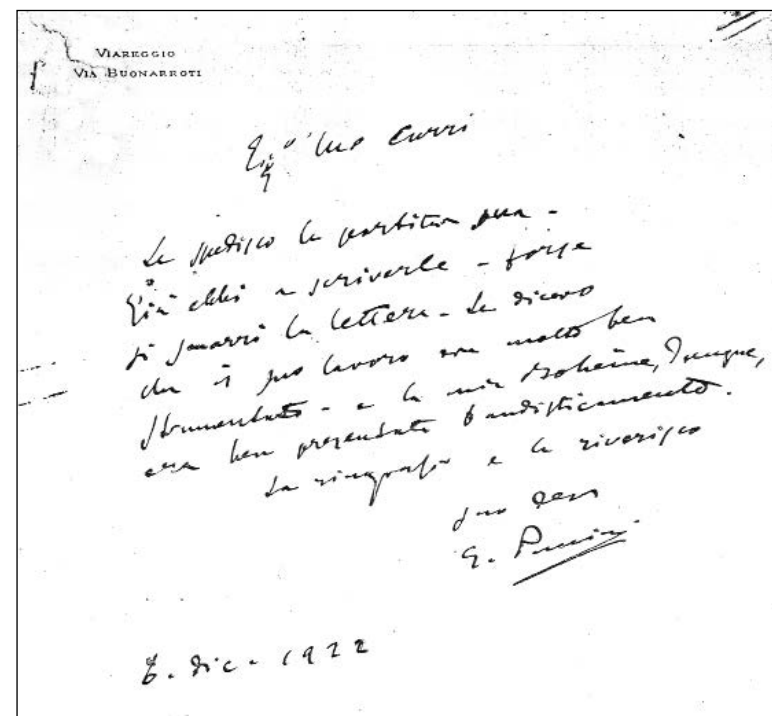 VIAREGGIO
VIA BUONARROTI
Egº Mo Curri
Le spedisco la partitura sua -
Già ebbi a scriverle - forse
si smarrì la lettera - Le dicevo
che il suo lavoro era molto ben
strumentato - e la mia Bohème, dunque,
era ben presentata bandisticamente.
La ringrazio e la riverisco
suo dev
G. Puccini
6. dic. 1922